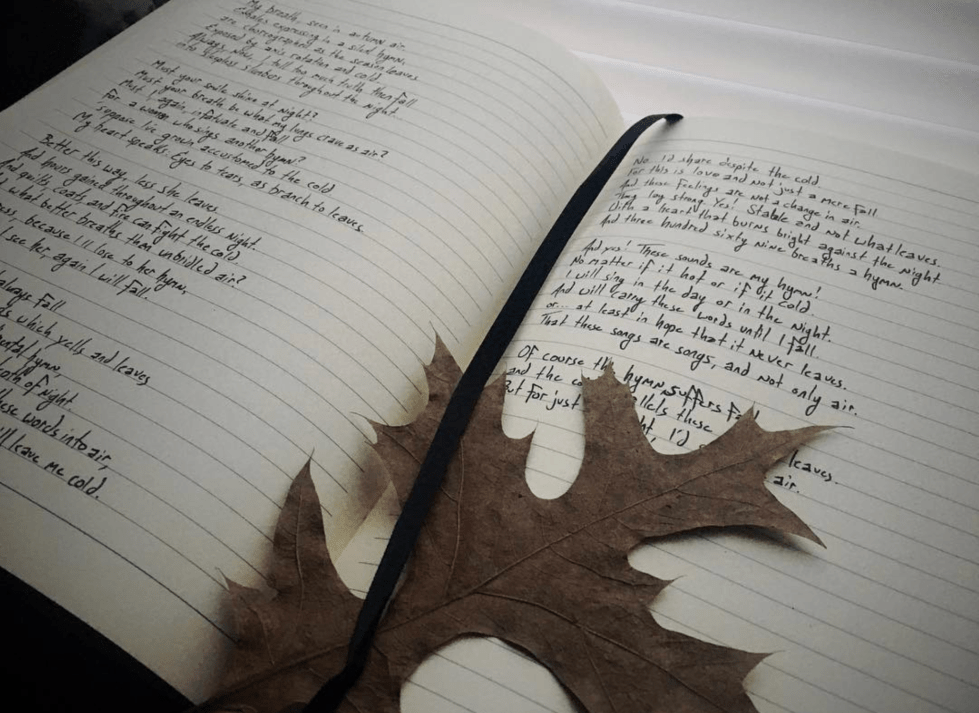 My breath, seen in autumn air
expressing in a silent hymn,
are choreographed as the season leaves
Exposed by axis rotation and cold.
Always Now, I tell too much truth then fall
into sleepless slumbers throughout the night.
Must your smile shine at Night?
Must your breath be what my lungs crave as air?
Must I, again, infatuate and fall
For a woman who sings another hymn?
Suppose I've grown accustomed to the cold
My heart speaks. Eyes to tears, as branch to leaves.
Better this way, less she leaves
And hours gained throughout an endless Night.
And quilts, coats, and fire can fight the cold
what better breaths then unbridled air?
because I'll lose to her hymn,
I see her, again I will fall.
always fall
which yells and leaves
hymn,
of Night.
these words into air,
leave me cold.
No. I'd share despite the cold
For this is love and Not just a mere fall
And these feelings are Not a change in air.
They log strong. Yes! Stable and Not what leaves.
With a heart that burns bright against the Night
And three hundred sixty Nine breaths a hymn.
And yes! These sounds are my hymn!
No matter if it hot or if it cold.
I will sing in the day or in the Night.
And will carry these words until I fall
or... at least in hope that it Never leaves.
That these songs are songs, and Not only air.
Of course the hymn suffers
and the these
But for just I'd
leaves.
air.